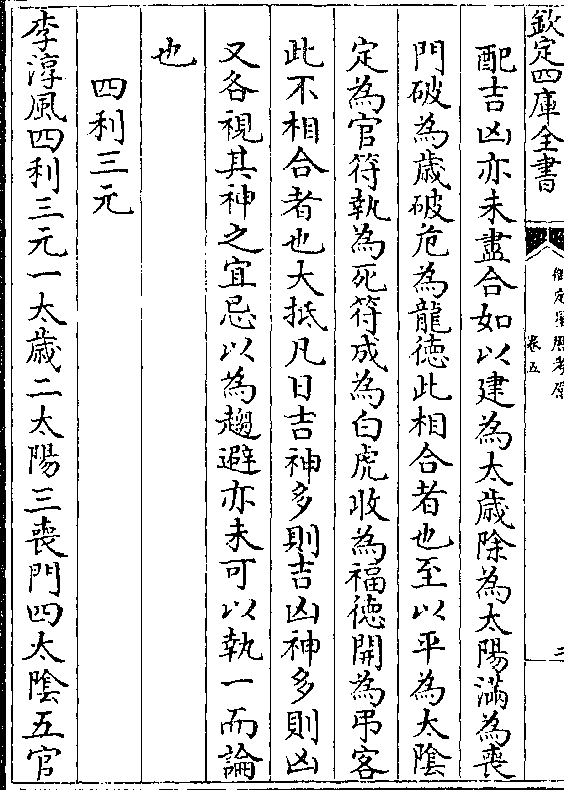 欽定四庫全書
御定星厯考原
卷五
配吉凶亦未盡合如以建為太歲除為太陽滿為喪
門破為歲破危為龍徳此相合者也至以平為太陰
定為官符執為死符成為白虎收為福徳開為弔客
此不相合者也大抵凡日吉神多則吉凶神多則凶
又各視其神之宜忌以為趨避亦未可以執一而論
也
四利三元
李淳風四利三元一太歲二太陽三喪門四太陰五官